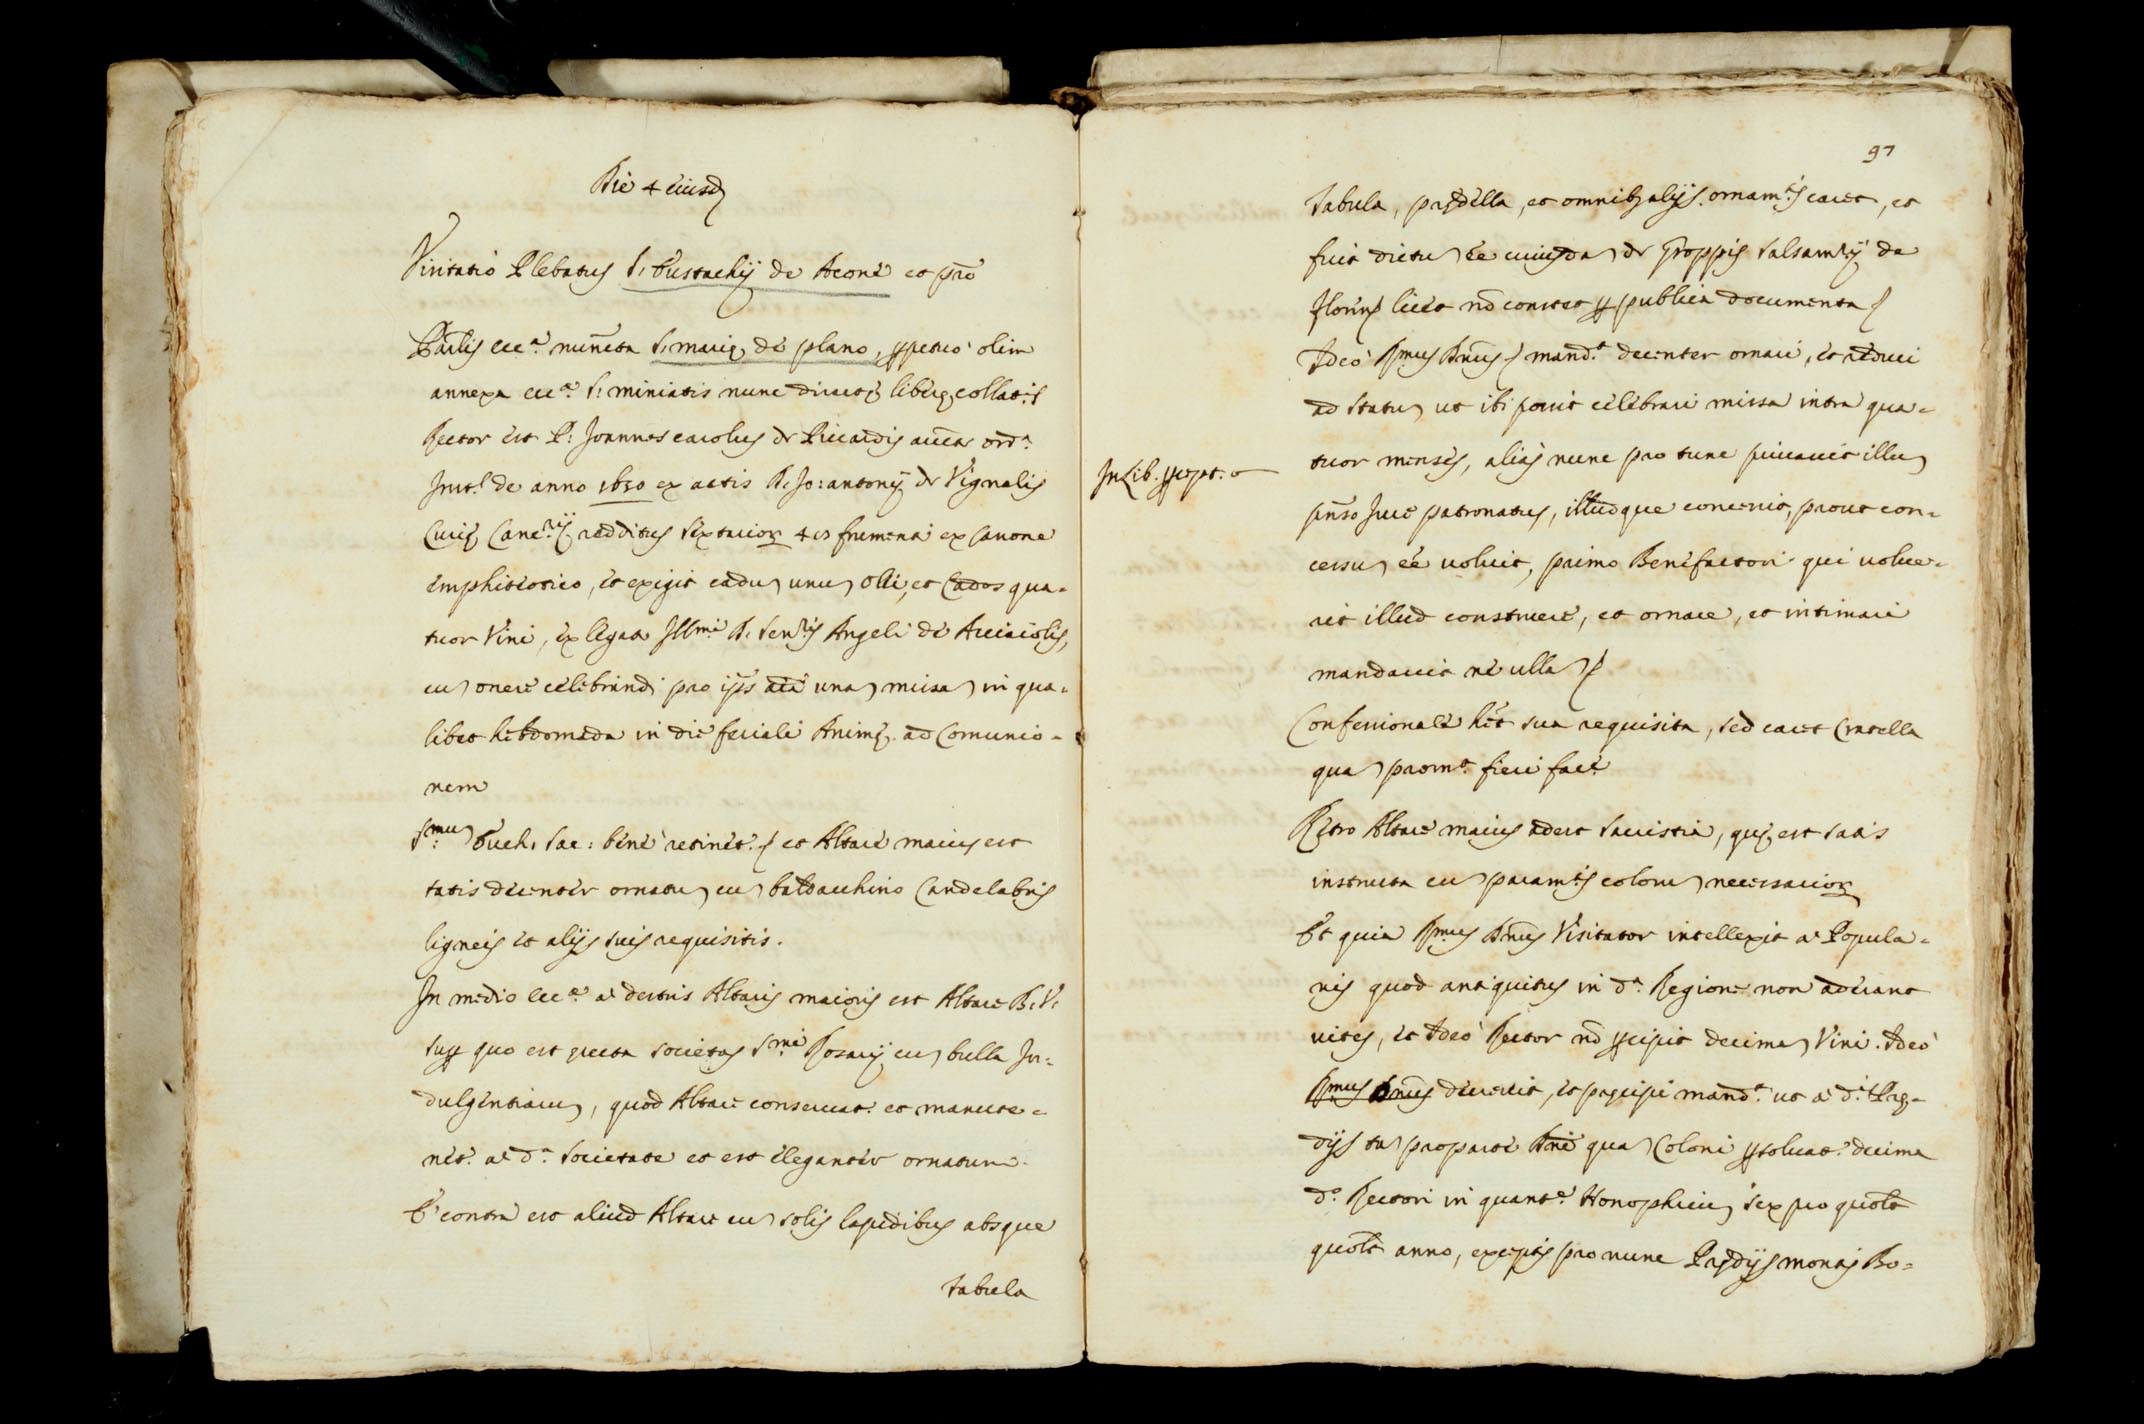 Die 4 eiusd
Visitatio Plebatus S. Eustachij de Acone et pro
Parlis ecc.a nuncta S. Marię de plano, ꝑpetuo olim
annexa ecc.ę S. Miniatis nunc liberę collat.s
Rector est P. Joannes carolus de Ricardis auctę ord.a
Inst.s de anno 1650 ex actis D. Jo: antonij de Vignalis
Curię Canc.rij redditus sextarior 4 frumenti ex canone
emphiteotico, et exigit cadu unu olei, et Cados qua-
tuor Vini, ex legato Ill.mi D. Sen.ris Angeli de Acciaiolis,
cu onere celebrandi pro ips aia una missa in qua-
libet hebdomada in die feriali Animę ad Comunio-
nem
S.mu Euch. Sac: bene retinet. et Altare maius est
satis decenter ornatu cu baldacchino Candelabris
ligneis et alijs suis requisitis.
In medio ecc.ę a dextris Altaris maioris est Altare B. V.
suꝑ quo est erecta societas S.mi Rosarij cu bulla In-
dulgentiaru, quod Altare conseruat. et manute-
net. a d.a societate et est eleganter ornatum.
E contra est aliud Altare cu solis lapidibus absque
tabula
97
tabula, prędella, et omnibꝫ alijs ornam.tis caret, et
fuit dictu ee cuiusda de Groppis salsam.rij de
flore licet no constet ꝑ publica documenta
Ideo R.mus Dnus mand.t decenter ornari, et reduci
ad statu ut ibi possit celebrari missa intra qua-
tuor menses, alias nunc pro tunc priuauit illu
In Lib. ꝑcept.
pnso Jure patronatus, illudque concessit, prout con-
cessu ee uoluit, primo Benefactori qui uolue-
rit illud construere, et ornare, et intimari
mandauit ne ulla
Confessionale het sua requisita, sed caret Cratella
qua prom.t fieri face
Retro Altare maius adest sacristia, quę est satis
instructa cu param.tis coloru necessarior
Et quia R.mus Dnus Visitator intellexit a Popula-
ris quod antiquitus in d.a Regione non aderant
uites, et Ideo Rector no ꝑcipit decima Vini. Ideo
R.mus Dnus decreuit, et pręcipi mand.t ut a d.s Prę-
dijs ta pro parte Dni qua Coloni ꝑsoluat. decima
d.o Rectori in quant.e Honophieru sex pro quolt
quolt anno, exceptis pro nunc Prędijs monas Bo-